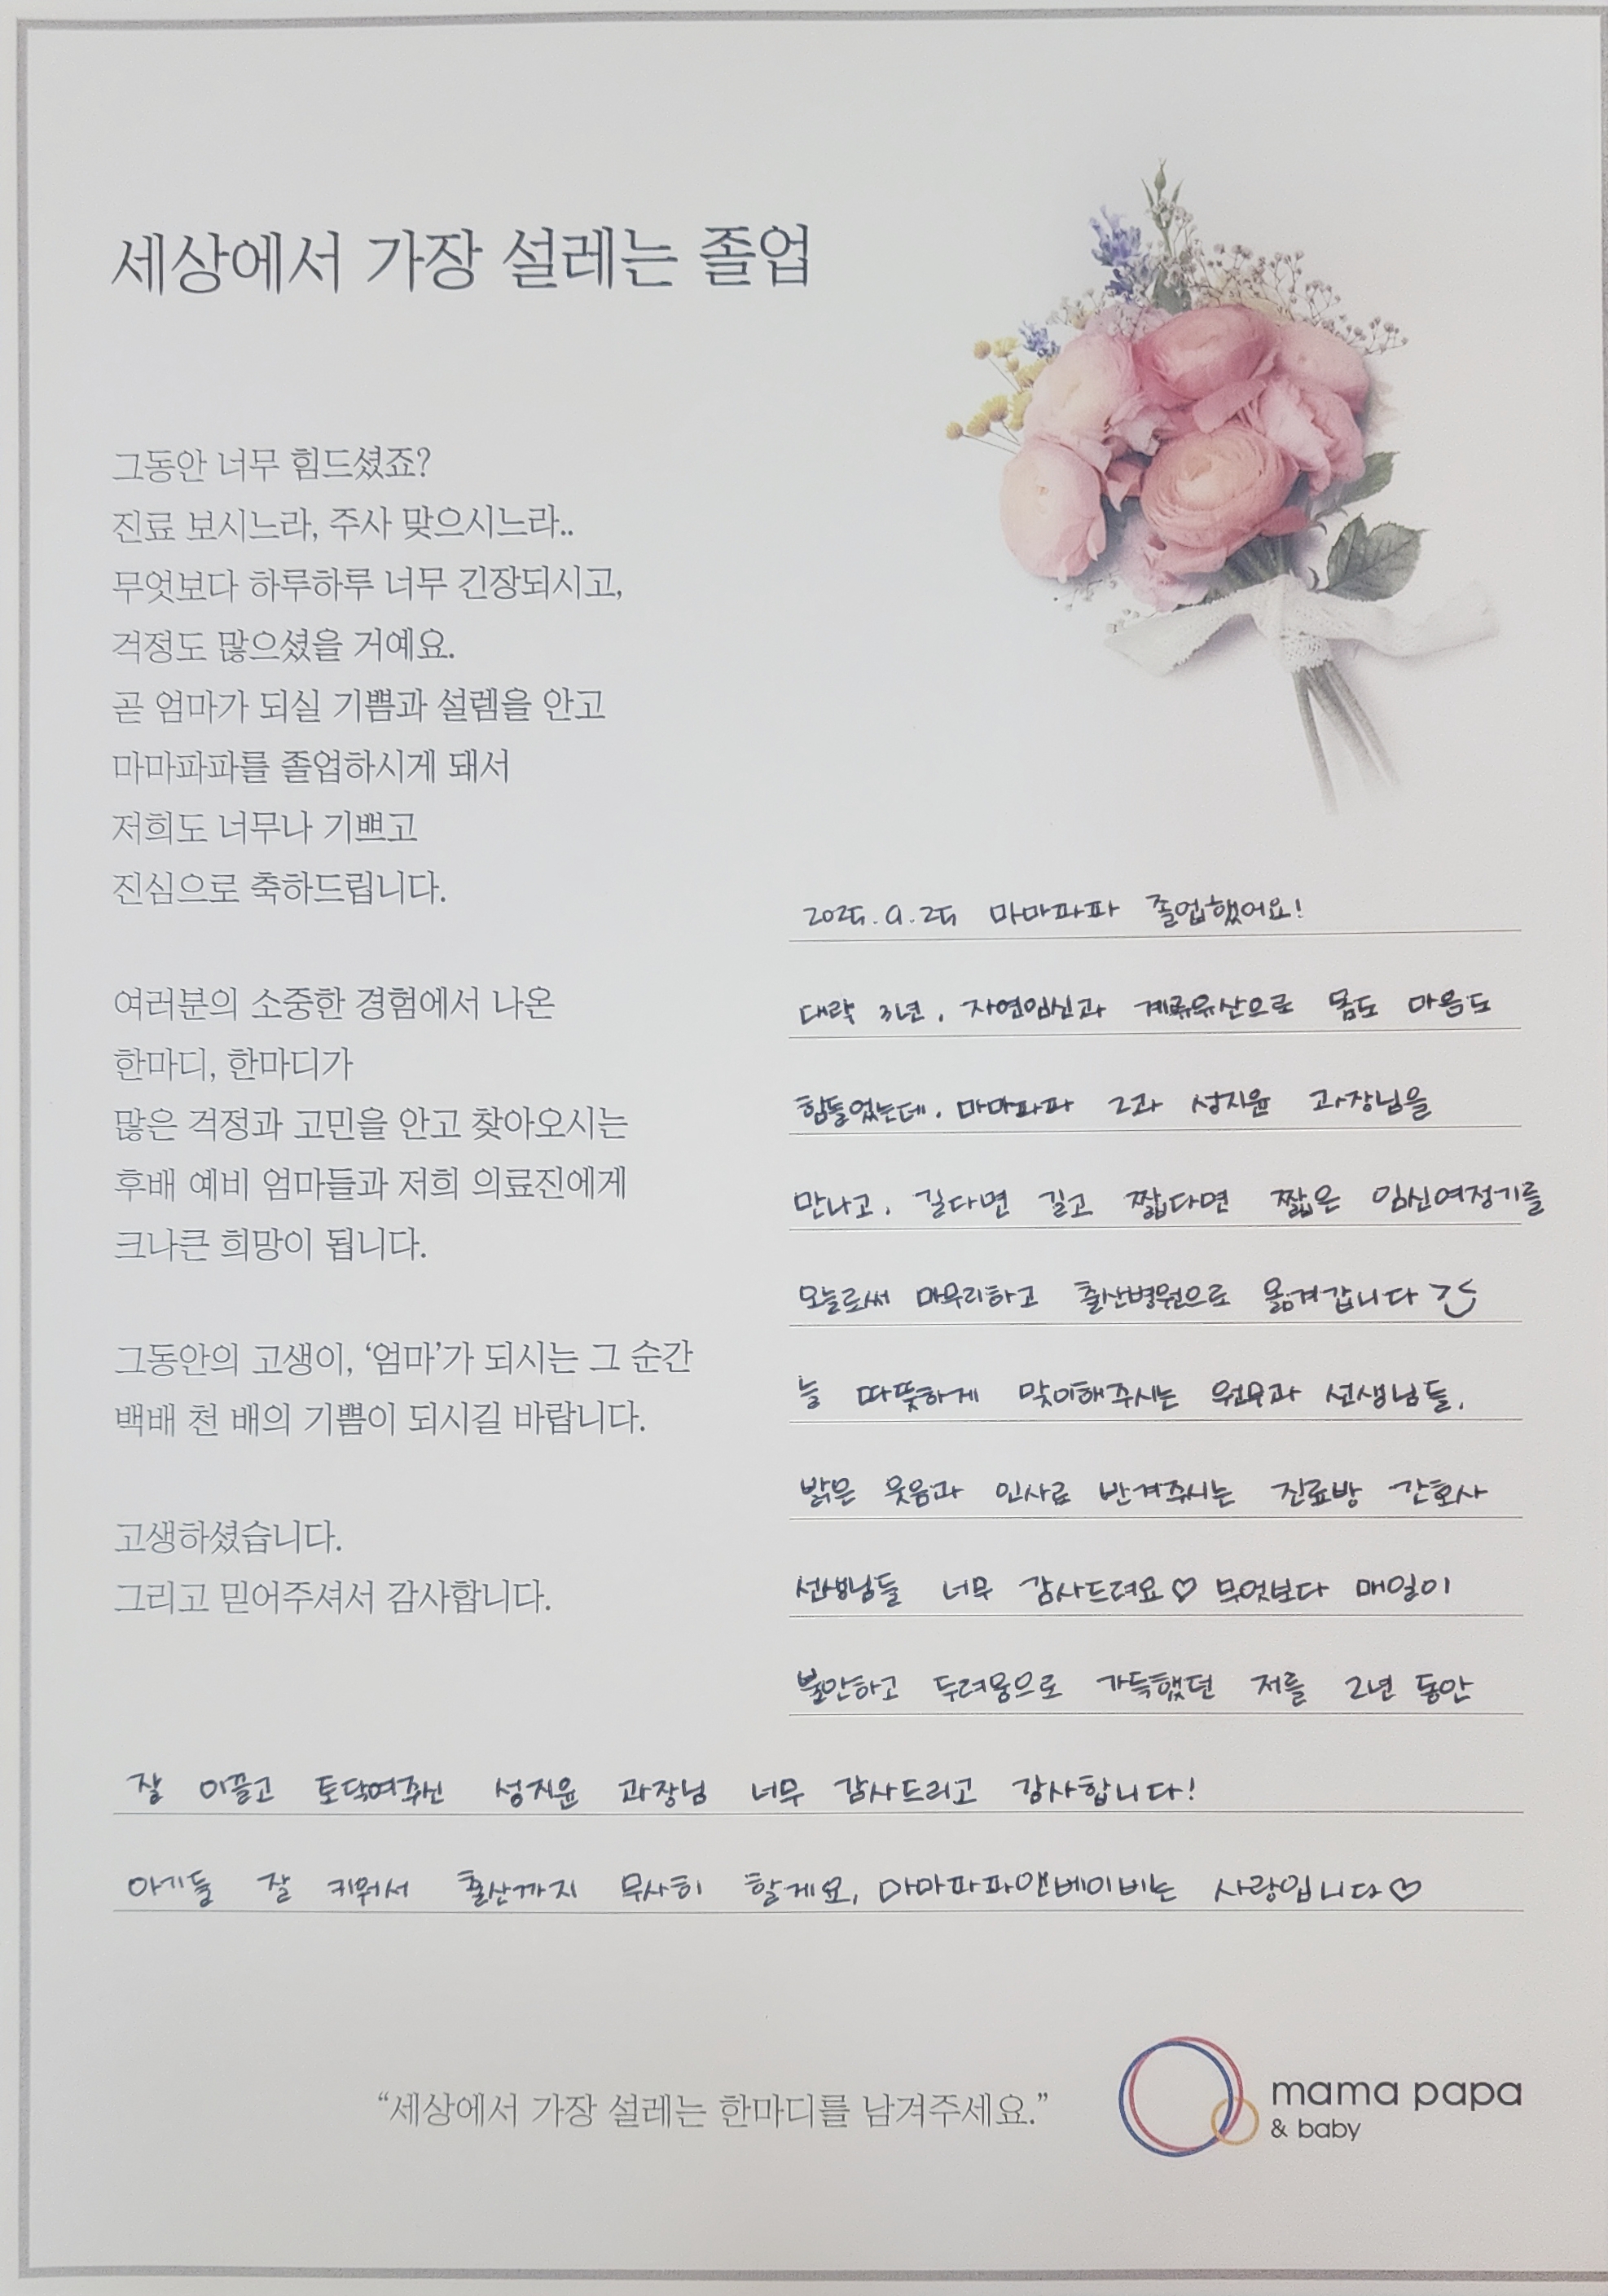 세상에서 가장 설레는 졸업
그동안 너무 힘드셨죠?
진료 보시느라, 주사 맞으시느라..
무엇보다 하루하루 너무 긴장되시고,
걱정도 많으셨을 거예요.
곧 엄마가 되실 기쁨과 설렘을 안고
마마파파를 졸업하시게 돼서
저희도 너무나 기쁘고
진심으로 축하드립니다.
여러분의 소중한 경험에서 나온
한마디, 한마디가
많은 걱정과 고민을 안고 찾아오시는
후배 예비 엄마들과 저희 의료진에게
크나큰 희망이 됩니다.
그동안의 고생이, ‘엄마’가 되시는 그 순간
백배 천 배의 기쁨이 되시길 바랍니다.
고생하셨습니다.
그리고 믿어주셔서 감사합니다.
2025.9.25 마마파파 졸업했어요!
대략 3년, 자연임신과 계류유산으로 몸도 마음도
힘들었는데, 마마파파 2과 성지윤 과장님을
만나고, 길다면 길고 짧다면 짧은 임신여정기를
오늘로써 마무리하고 출산병원으로 옮겨갑니다
늘 따뜻하게 맞이해주시는 원무과 선생님들,
밝은 웃음과 인사로 반겨주시는 진료방 간호사
선생님들 너무 감사드려요♡ 무엇보다 매일이
불안하고 두려움으로 가득했던 저를 2년 동안
잘 이끌고 토닥여주신 성지윤 과장님 너무 감사드리고 감사합니다!
아기들 잘 키워서 출산까지 무사히 할게요, 마마파파앤베이비는 사랑입니다♡
“세상에서 가장 설레는 한마디를 남겨주세요.”
mama papa
& baby